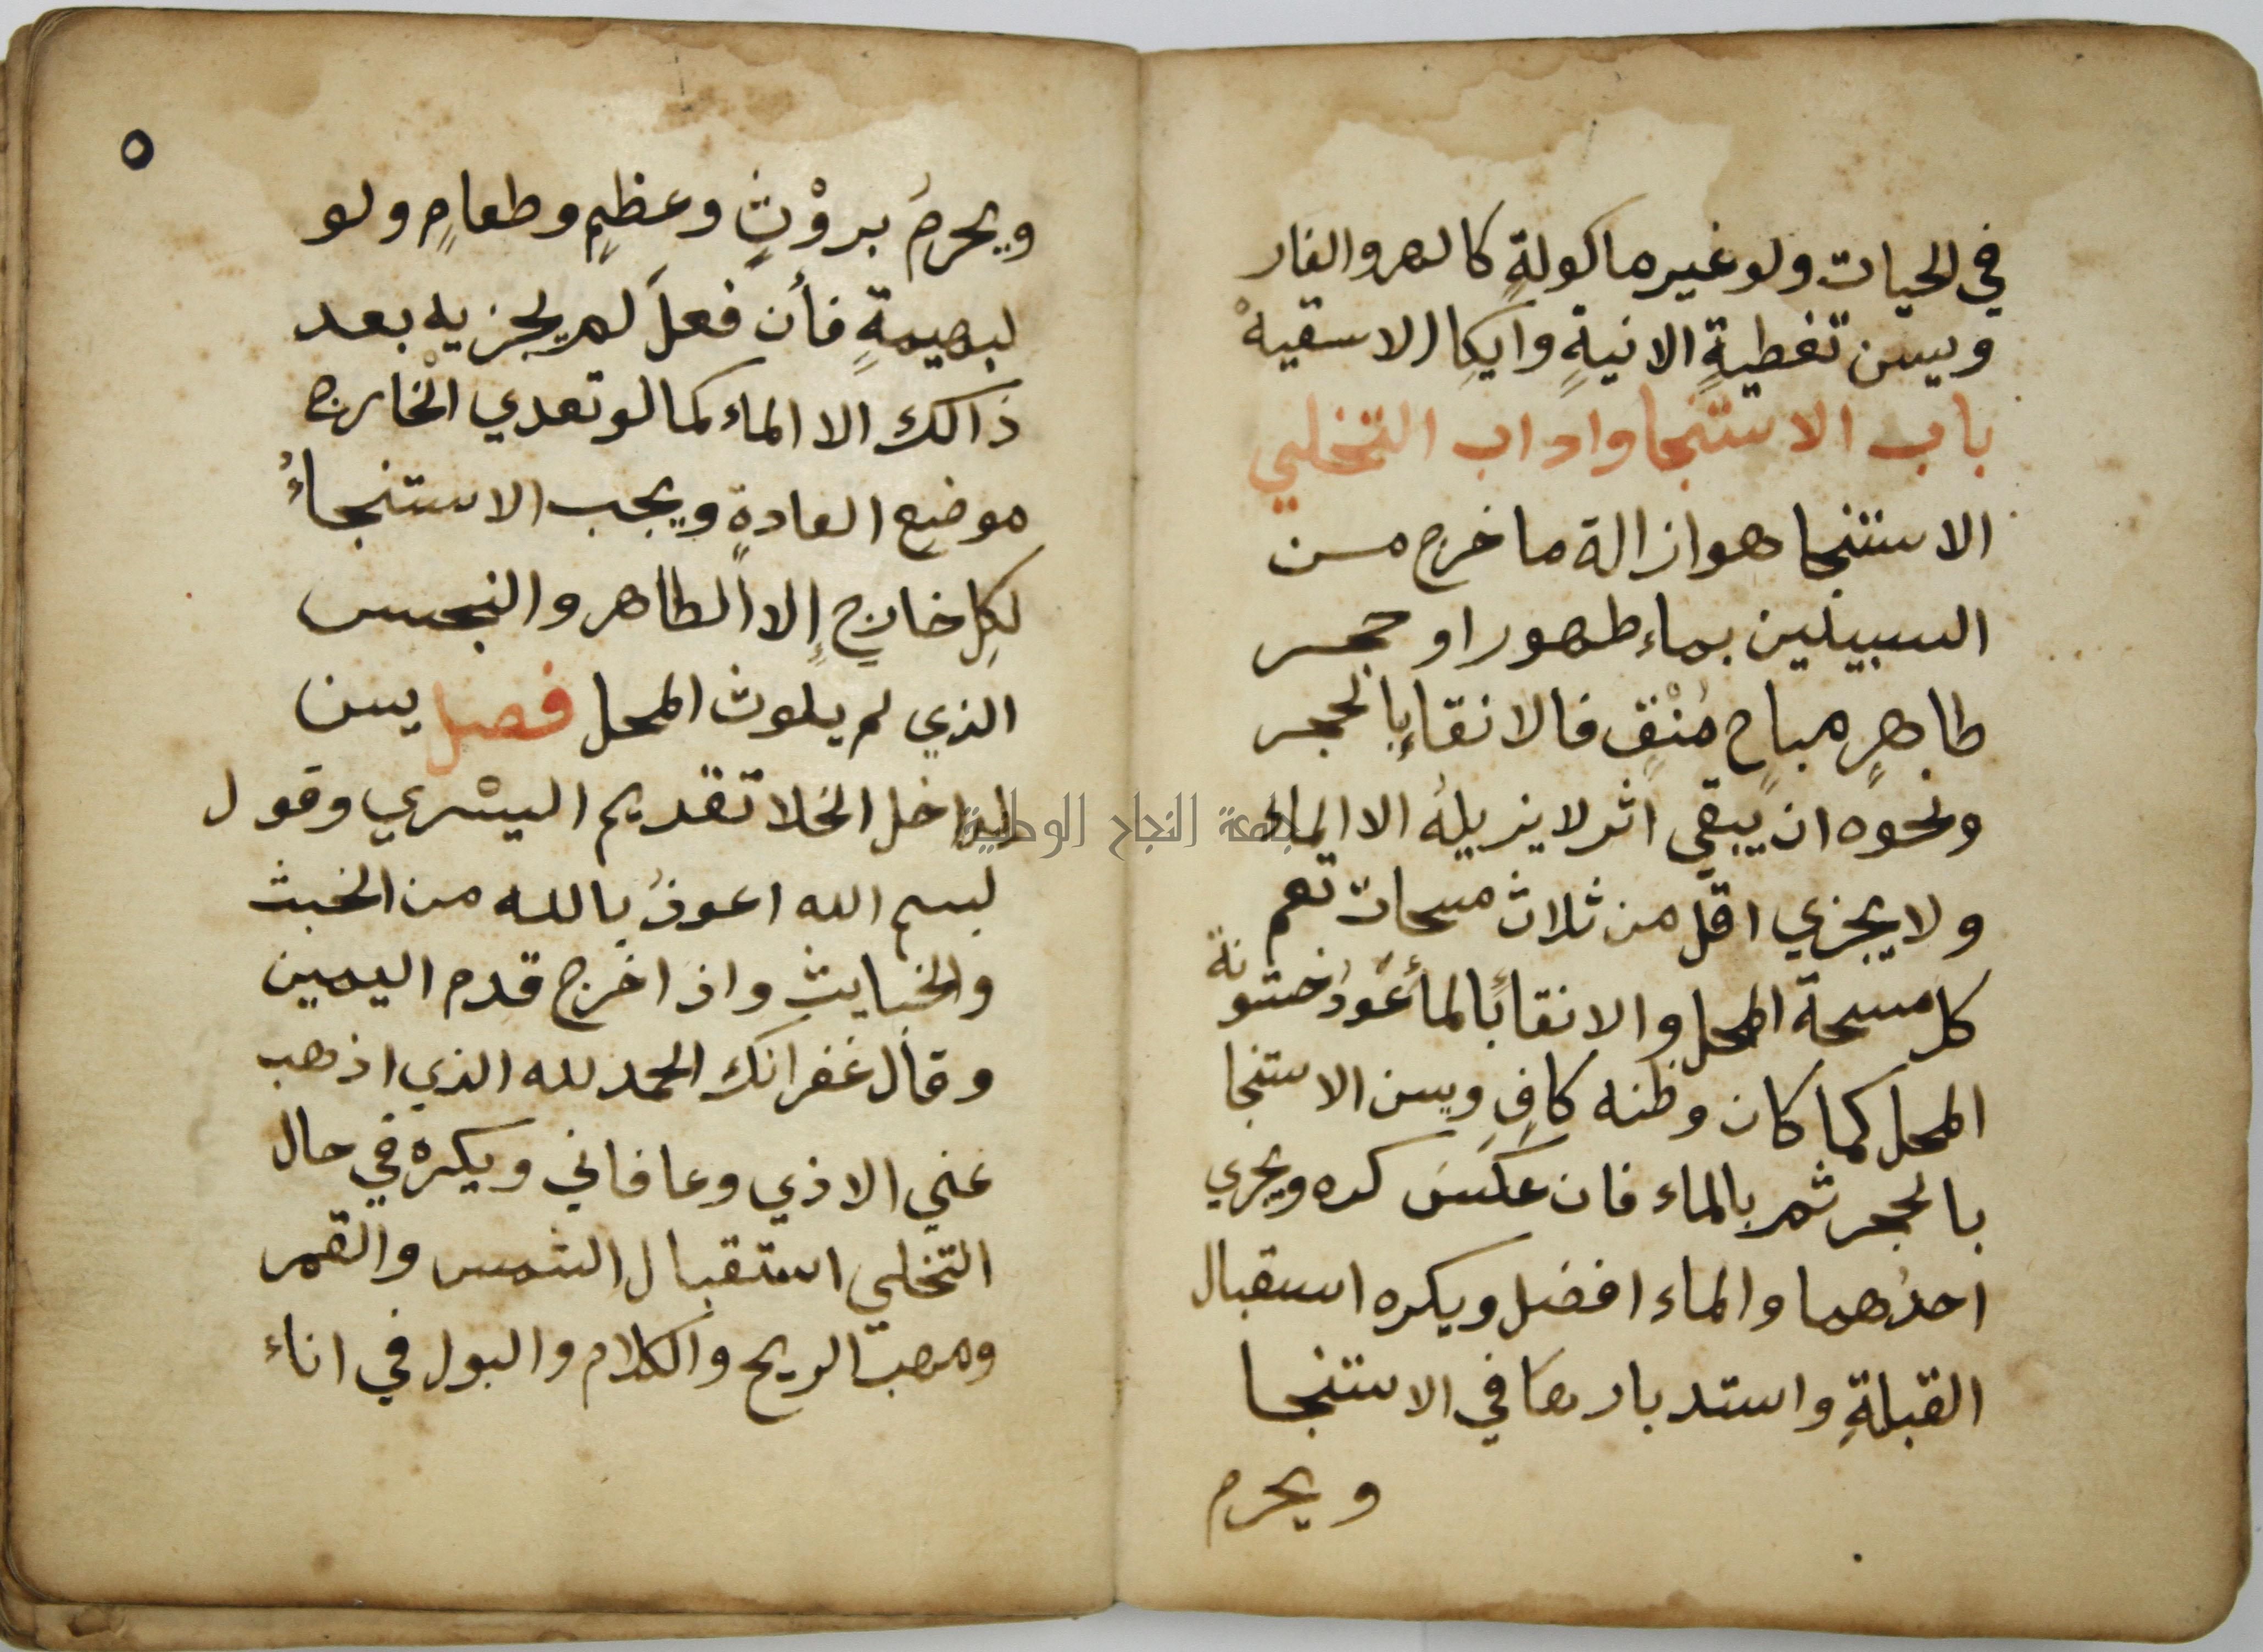 في الحيات ولو غير ماكولةٍ كالهر والفار
ويسن تغطيةٍ الانيةٍ وايكِا الاسقيهْ
باب الاستنجا واداب التخلي
الاستنجا هو ازالة ما خرج مسن
السبيلين بماء طهور او حجسر
طاهرٍ مباحٍ مُنْقٍ فالانقاءِ بالحجسر
ونحوه ان يبقي اثر لا يزيلهُ الا الماء
ولا يجزي اقل من ثلاث مسحات تعم
كل مسحة المحل والانقا بالماءُ عَودُ خشونة
المحل كما كان وظنه كافٍ ويسن الاستنجا
بالحجر ثم بالماء فان عكَسَ كره ويجزي
احدُهما والماء افضل ويكره استقبال
القبلةِ واستدبارها في الاستنجا
ويحرم
٥
ويحرمُ بروْثٍ وعظمٍ وطعامٍ ولو
لبهيمةٍ فأن فعلَ لم يجزيه بعد
ذالك الا الماء كما لو تعدي الخارج
موضع العادةِ ويجب الاستنجاءُ
لكِل خارجٍ إلا الطاهر والنجس
الذي لم يلوث المحل فصل يسن
لداخل الخلا تقديم اليسْري وقول
بسم الله اعوذُ بالله من الخبث
والخبايث واذا خرج قدم اليمين
وقال غفرانك الحمد لله الذي اذهب
عني الاذي وعافاني ويكره في حال
التخلي استقبال الشمس والقمر
ومهب الريح والكلام والبول في اناء
جامعة النجاح الوطنية